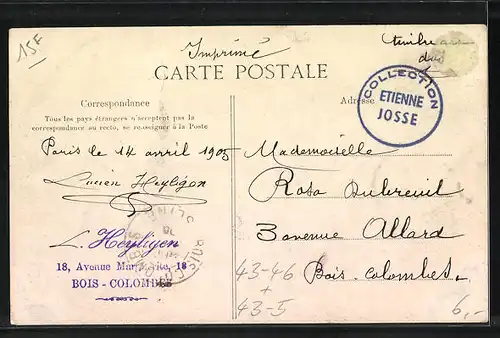 15F
Imprimé
timbre au
dos
CARTE POSTALE
COLLECTION
ETIENNE
JOSSE
Correspondance
Adresse
Tous les pays étrangers n'acceptent pas la
correspondance au recto, se renseigner à la Poste
Paris le 14 avril 1905
Lucien Heyligen
L. Heyligen
18, Avenue Marguerite, 18
BOIS-COLOMBES
Mademoiselle
Rosa Dubreuil
3 avenue Allard
Bois-Colombes
43-46
+
43-5
6,-